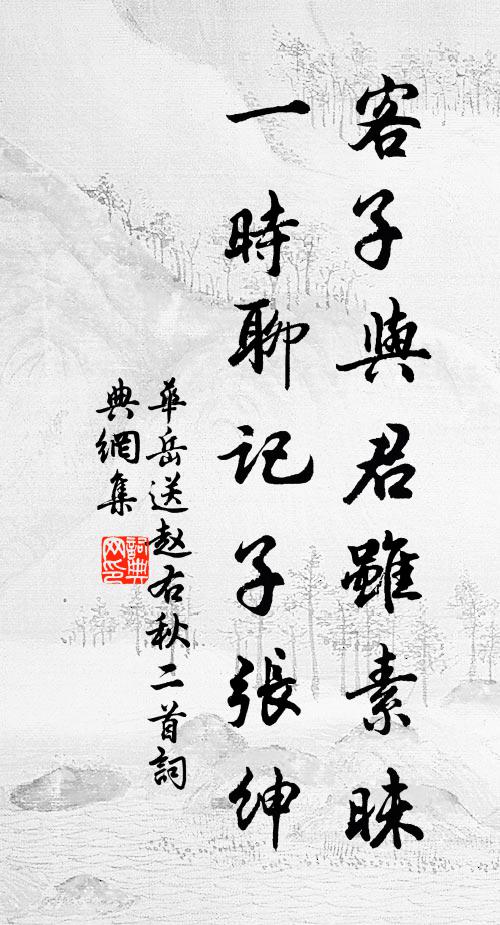 客子與君雖素昧
一時聊記子張紳
華岳送赵右秋二首詞
典網集
詞典
网印